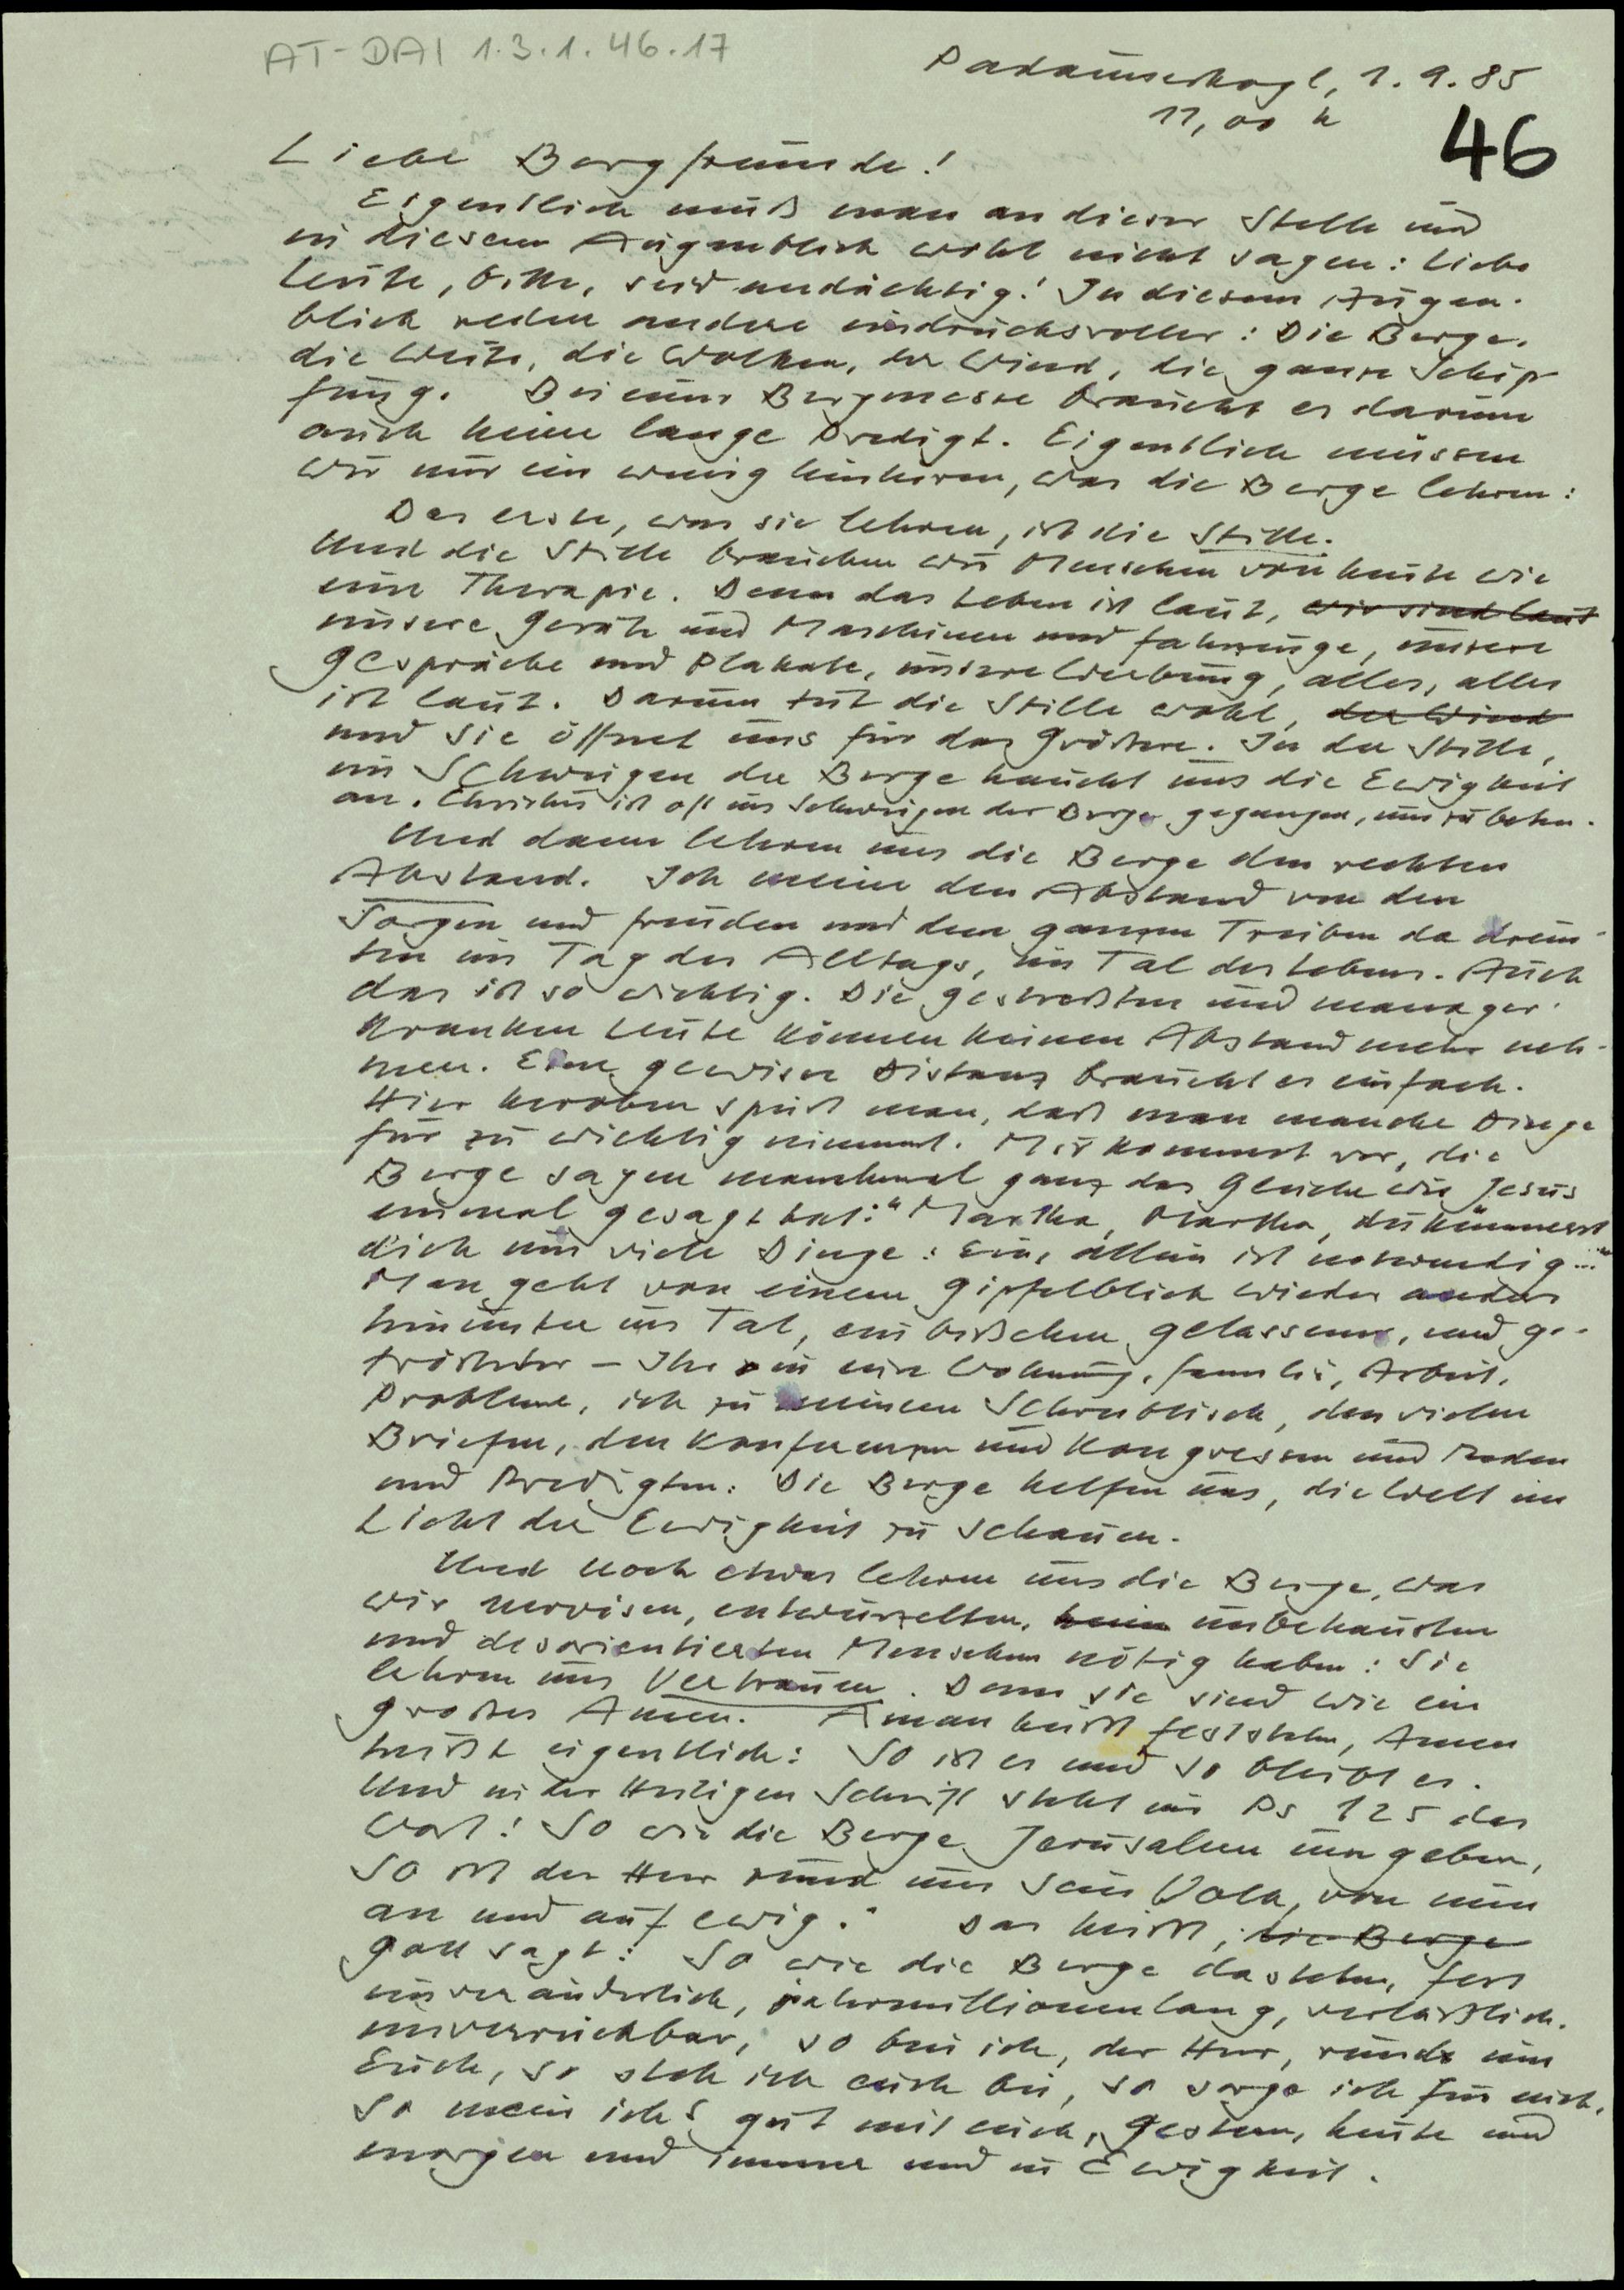 AT-DAI 1.3.1.46.17
Padaunerkogl, 1.9.85
11,00 h
46
Liebe Bergfreunde!
Eigentlich muß man an dieser Stelle und
in diesem Augenblick wohl nicht sagen: Liebe
Leute, bitte, seid andächtig! In diesem Augen-
blick reden andere eindrucksvoller: Die Berge,
die Weite, die Wolken, der Wind, die ganze Schöp-
fung. Bei einer Bergmesse braucht es darum
auch keine lange Predigt. Eigentlich müssen
wir nur ein wenig hinhören, was die Berge lehren:
Das erste, was sie lehren, ist die Stille.
Und die Stille brauchen wir Menschen von heute wie
eine Therapie. Denn das Leben ist laut, wir sind laut
unsere Geräte und Maschinen und Fahrzeuge, unsere
Gespräche und Plakate, unsere Werbung, alles, alles
ist laut. Darum tut die Stille wohl, der Wind
und sie öffnet uns für das Größere. In der Stille,
im Schweigen der Berge haucht uns die Ewigkeit
an. Christus ist oft ins Schweigen der Berge gegangen, um zu beten.
Und dann lehren uns die Berge den rechten
Abstand. Ich meine den Abstand von den
Sorgen und Freuden und dem ganzen Treiben da drun-
ten im Tag des Alltags, im Tal des Lebens. Auch
das ist so wichtig. Die gestreßten und manager-
kranken Leute können keinen Abstand mehr neh-
men. Eine gewisse Distanz braucht es einfach.
Hier heroben spürt man, daß man manche Dinge
für zu wichtig nimmt. Mir kommt vor, die
Berge sagen manchmal ganz das Gleiche wie Jesus
einmal gesagt hat: "Martha, Martha, du kümmerst
dich um viele Dinge: Eins allein ist notwendig..."
Man geht von einem Gipfelblick wieder anders
hinunter ins Tal, ein bißchen gelassener, und ge-
trösteter – Ihr in eure Wohnung, Familie, Arbeit,
Probleme, ich zu meinem Schreibtisch, den vielen
Briefen, den Konferenzen und Kongressen und Reden
und Predigten. Die Berge helfen uns, die Welt im
Licht der Ewigkeit zu schauen.
Und noch etwas lehren uns die Berge, was
wir nervösen, entwurzelten, unbehausten
und desorientierten Menschen nötig haben: Sie
lehren uns Vertrauen. Denn sie sind wie ein
großes Amen. Aman heißt feststehn, Amen
heißt eigentlich: So ist es und so bleibt es.
Und in der Heiligen Schrift steht im Ps 125 das
Wort: So wie die Berge Jerusalem umgeben,
so ist der Herr rund um sein Volk, von nun
an und auf ewig." Das heißt, die Berge
Gott sagt: So wie die Berge dastehn, fest
unveränderlich, jahrmillionenlang, verläßlich,
unverrückbar, so bin ich, der Herr, rund um
Euch, so steh ich euch bei, so sorge ich für euch,
so mein ichs gut mit euch, gestern, heute und
morgen und immer und in Ewigkeit.